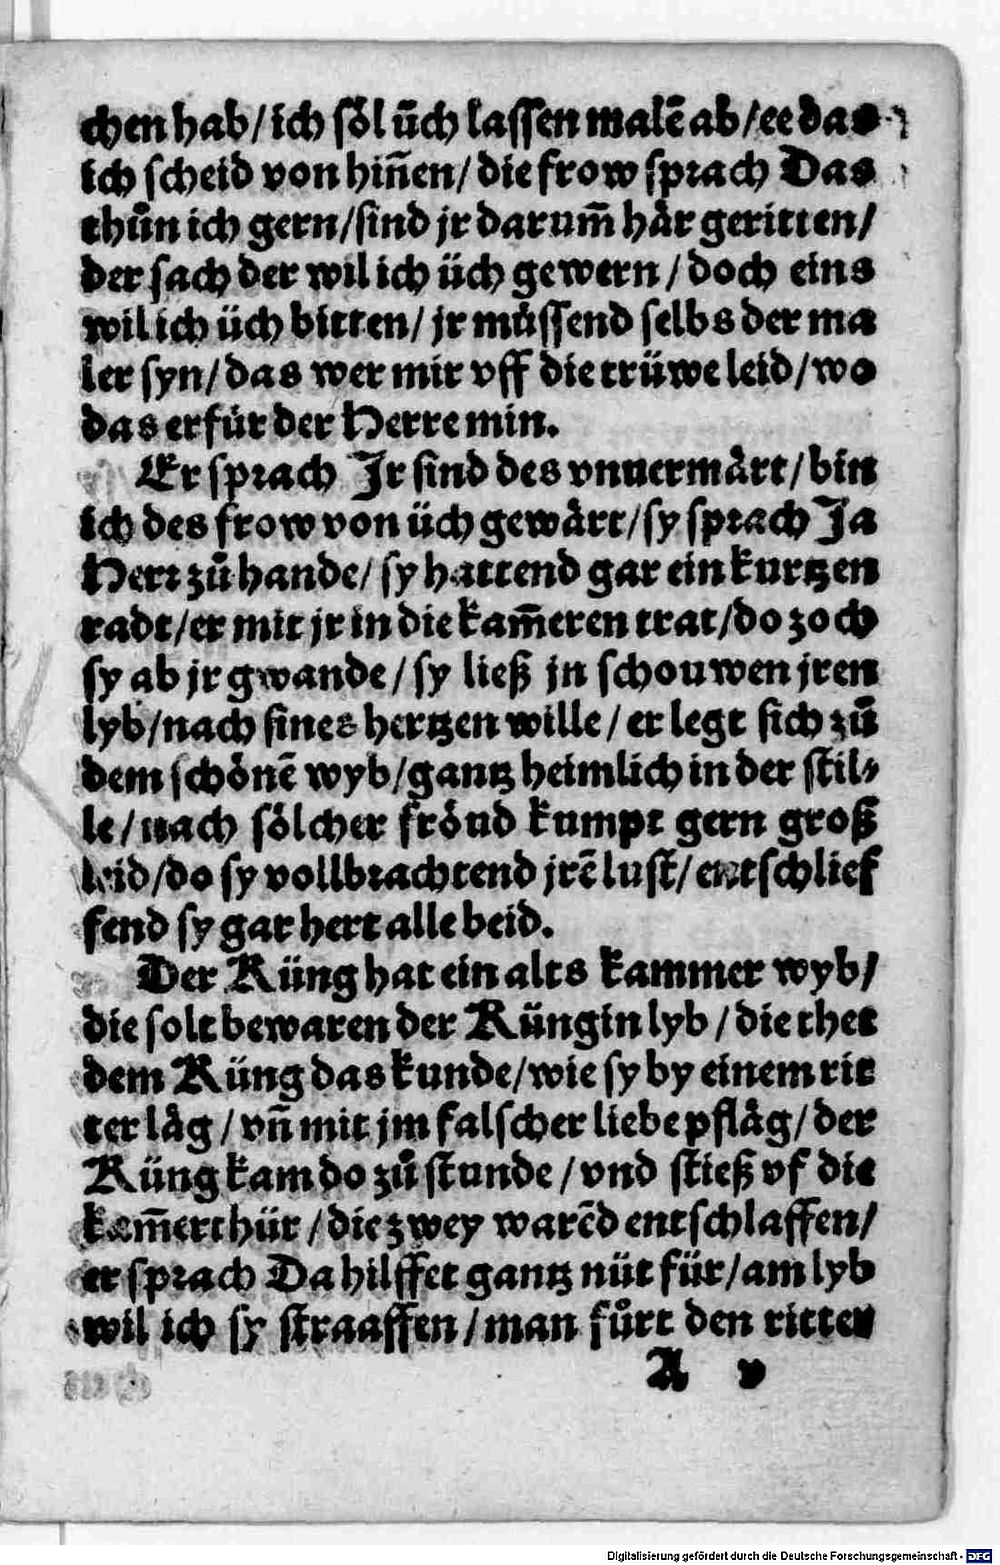 chen hab/ich sôl ũch lassen malẽ ab/ee das
ich scheid von hiñen/die frow sprach Das
thůn ich gern/sind jr darum̃ hår geritten/
der sach der wil ich üch gewern/doch eins
wil ich üch bitten/jr müssend selbs der ma
ler syn/das wer mir vff die trüwe leid/wo
das erfür der Herre min.
Er sprach Jr sind des vnuermårt/bin
ich des frow von üch gewårt/sy sprach Ja
Herr zů hande/sy hattend gar ein kurtzen
radt/er mit jr in die kam̃eren trat/do zoch
sy ab jr gwande/sy ließ jn schouwen jren
lyb/nach sines hertzen wille/er legt sich zů
dem schônẽ wyb/gantz heimlich in der stil⸗
le/nach sôlcher frôud kumpt gern groß
leid/do sy vollbrachtend jrẽ lust/entschlief
fend sy gar hert alle beid.
Der Küng hat ein alts kammer wyb/
die solt bewaren der Küngin lyb/die thet
dem Küng das kunde/wie sy by einem rit
ter låg/vñ mit jm falscher liebe pflåg/der
Küng kam do zů stunde/vnd stieß vf die
kam̃erthür/die zwey warẽd entschlaffen/
er sprach Da hilffet gantz nüt für/am lyb
wil ich sy straaffen/man fůrt den ritter
A v
Digitalisierung gefördert durch die Deutsche Forschungsgemeinschaft - DFG